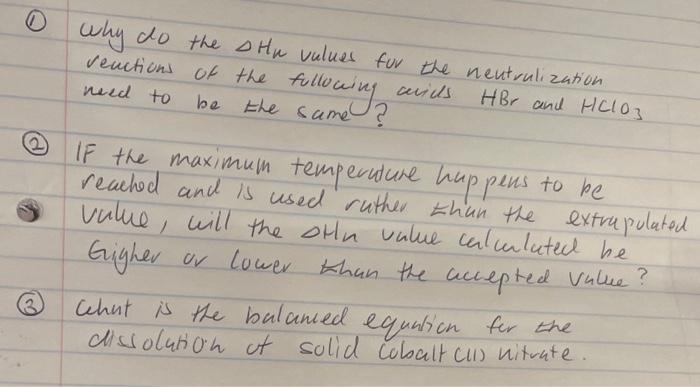 ① Why do the ΔHn values for the neutralization
reactions of the following acids HBr and HClO3
need to be the same?
② IF the maximum temperature happens to be
reached and is used rather than the extrapolated
value, will the ΔHn value calculated be
higher or lower than the accepted value?
③ What is the balanced equation for the
dissolution of solid Cobalt (II) nitrate.